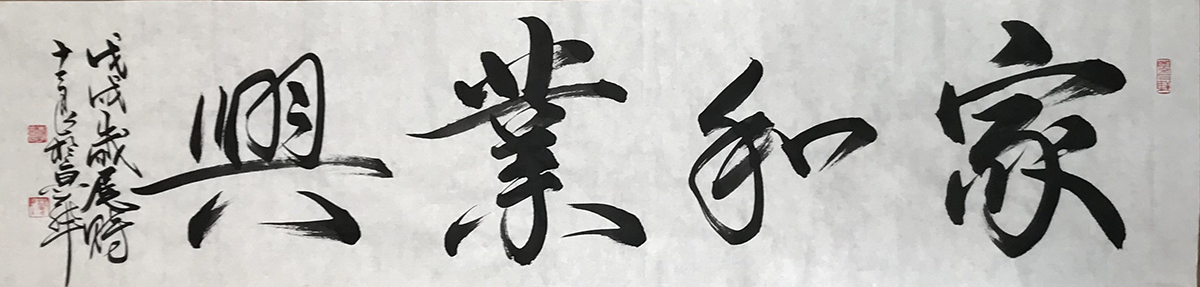 家和業興
戊戌歲尾時
十二月